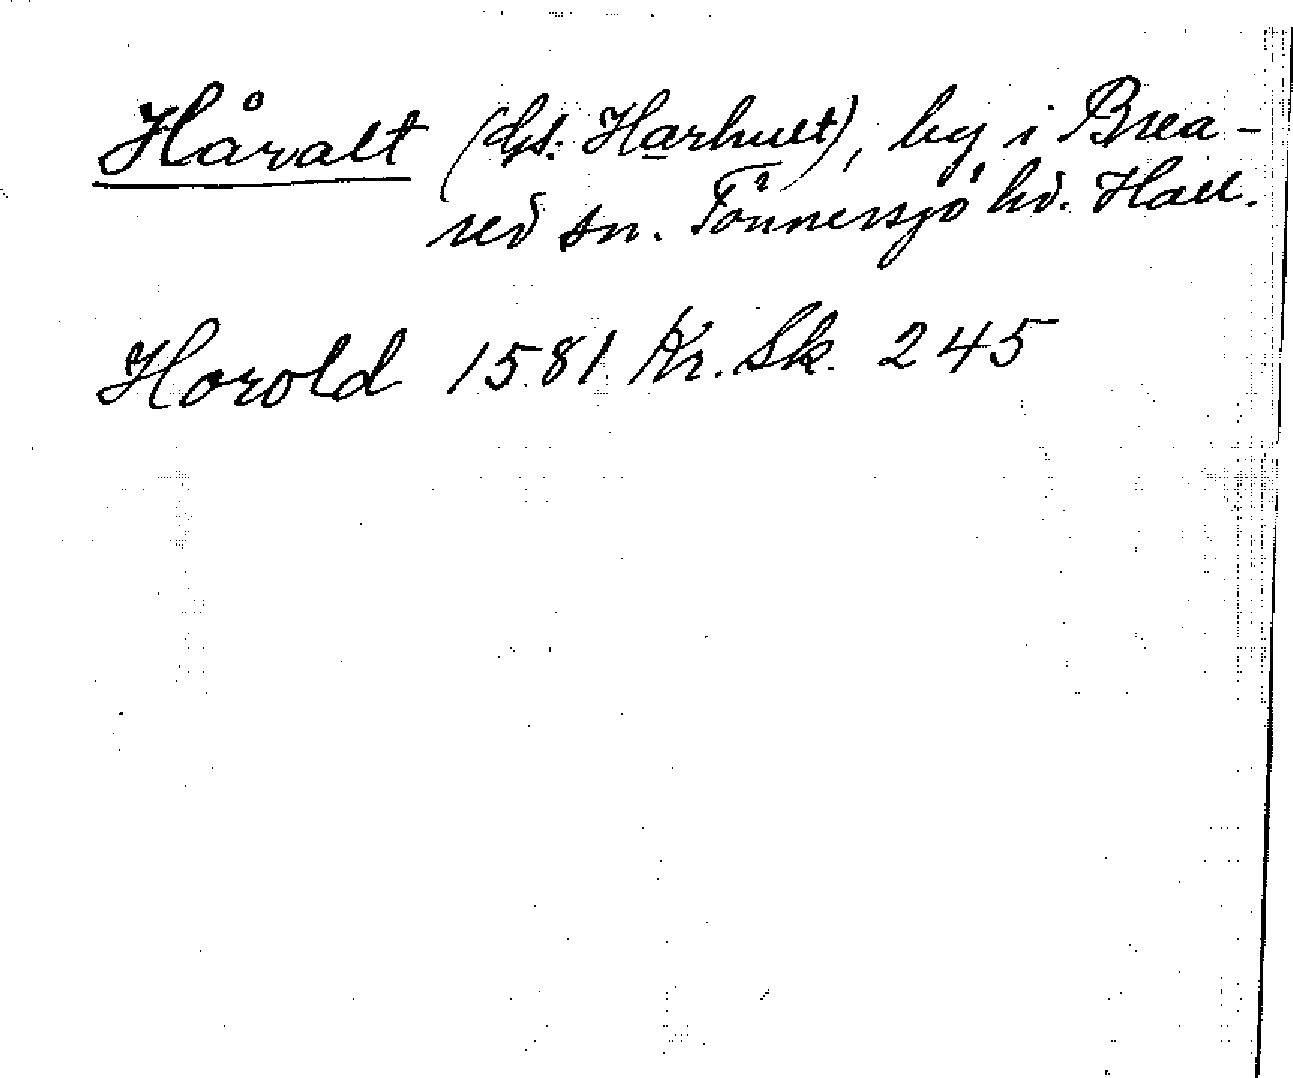 Håralt (Gs. Harhult), by i Brea-
red sn. Tönnersjö hd. Hall.
Horold 1581 Kr. Sk. 245